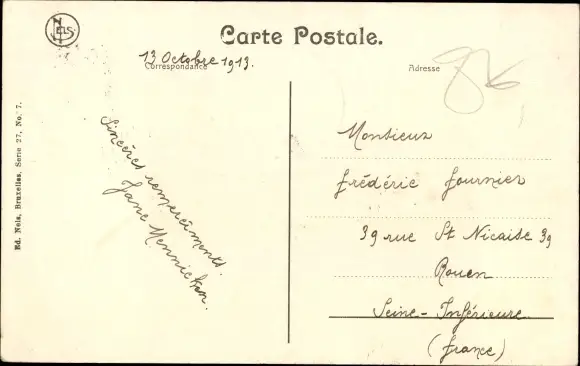 Nels
Carte Postale.
13 Octobre 1913.
Correspondance
Adresse
Ed. Nels, Bruxelles, Serie 27, No. 7.
Sincères remerciements.
Jane Mennicken.
Monsieur
Frédéric Fournier
39 rue St Nicaise 39
Rouen
Seine-Inférieure
(France)